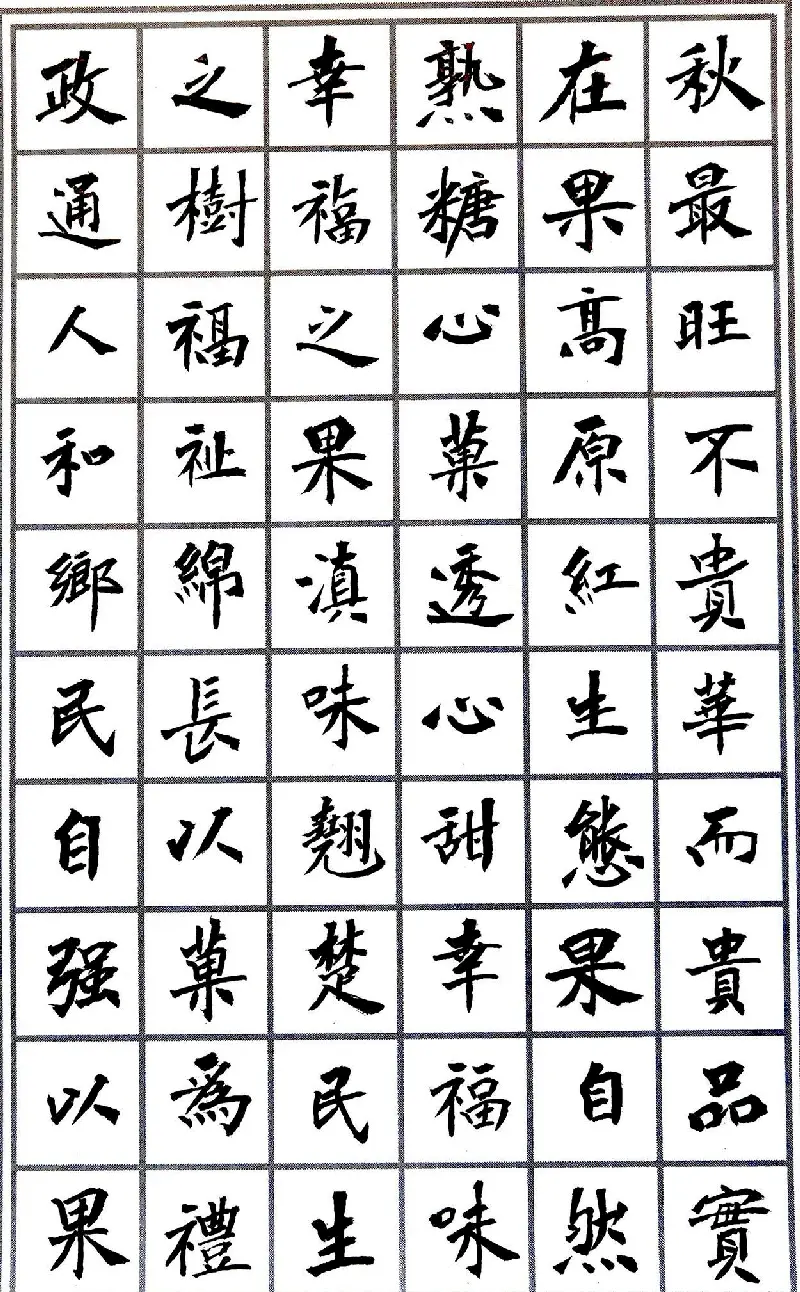 秋最旺不貴華而貴品實
在果高原紅生態果自然
熟糖心菓透心甜幸福味
幸福之果滇味翹楚民生
之樹福祉綿長以菓為禮
政通人和鄉民自强以果